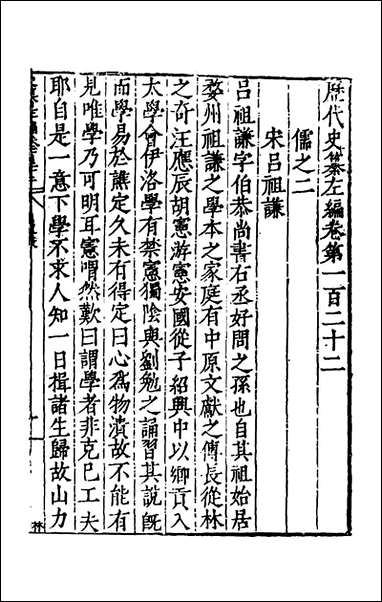 歷代史纂左編卷第一百二十二
儒之二
宋呂祖謙
呂祖謙字伯恭尚書右丞好問之孫也自其祖始居
婺州祖謙之學本之家庭有中原文獻之傳長從林
之奇汪應辰胡憲游憲安國從子紹興中以鄉貢入
太學會伊洛學有禁憲獨陰與劉勉之誦習其說旣
而學易於譙定久未有得定曰心爲物漬故不能有
見唯學乃可明耳憲喟然歎曰謂學者非克已工夫
耶自是一意下學不求人知一日揖諸生歸故山力
林